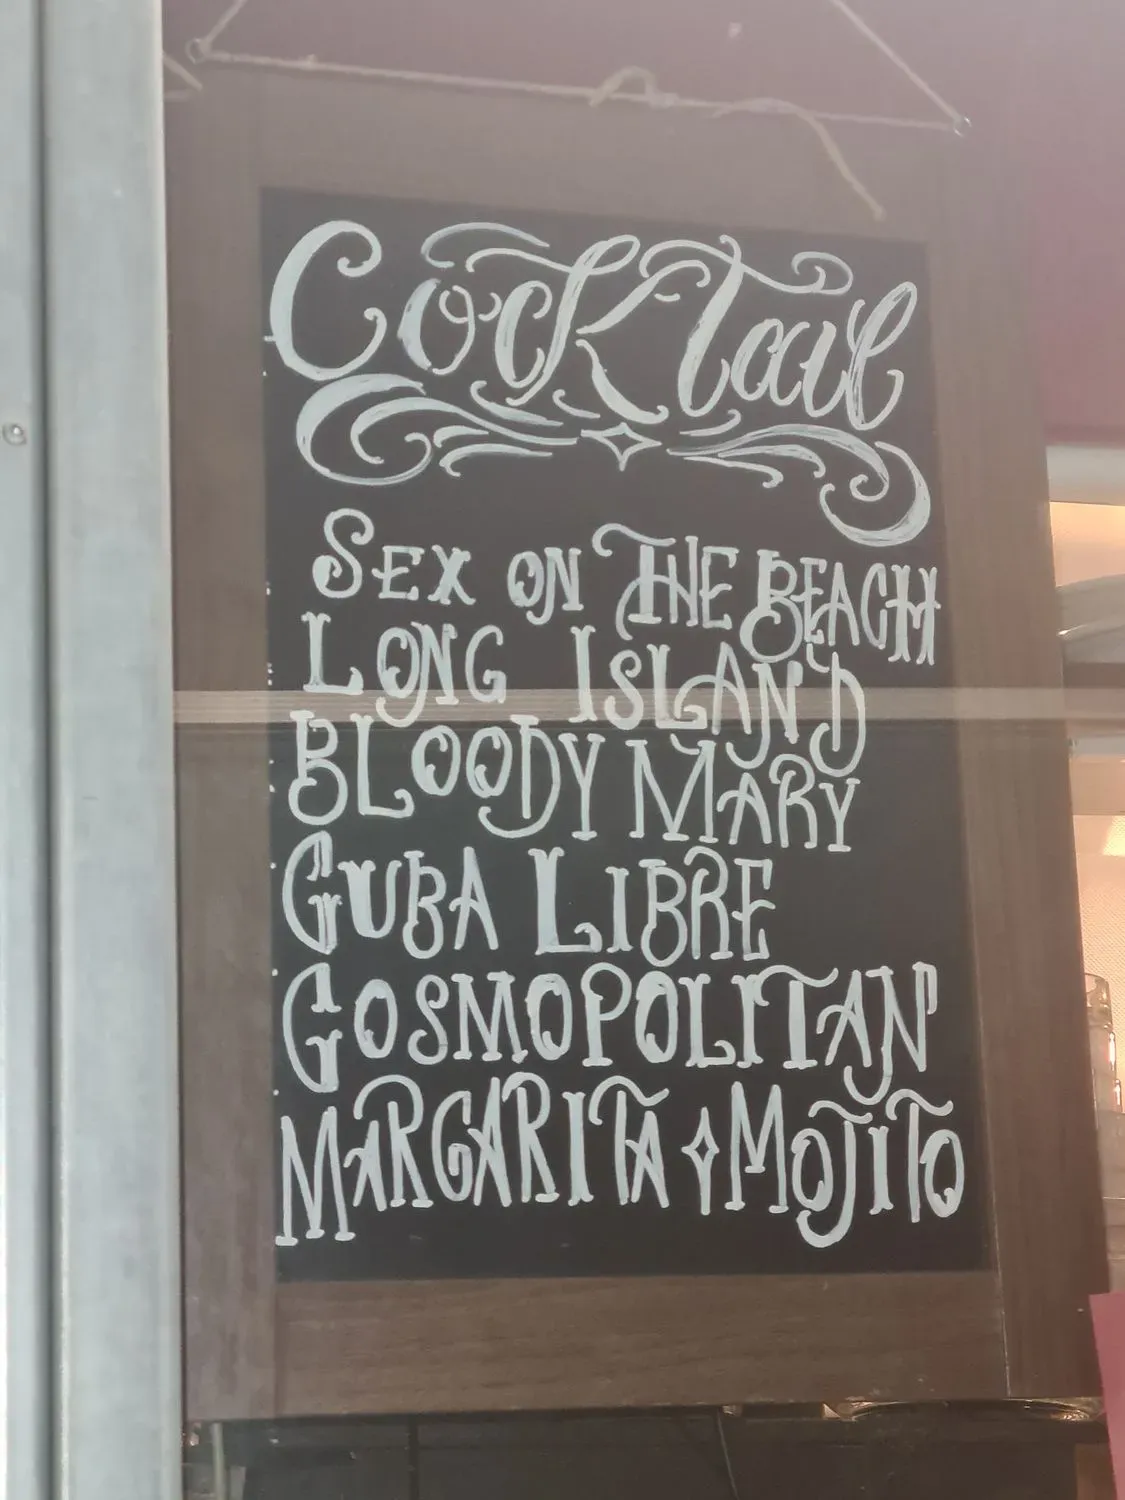 Cocktail
SEX ON THE BEACH
LONG ISLAND
BLOODY MARY
CUBA LIBRE
COSMOPOLITAN
MARGARITA MOJITO